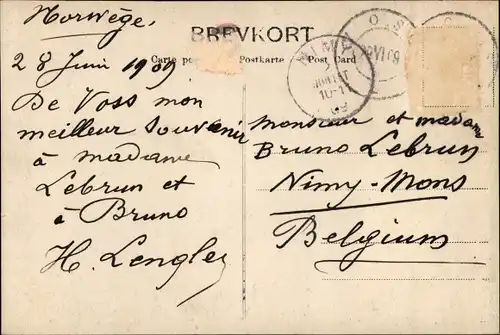 Norwège.
BREVKORT
Carte po Postkarte Post Card
28 Juin 1909
De Voss mon
meilleur souvenir
à madame
Lebrun et
à Bruno
H. Lengley
NIMY
10-11
09
Monsieur et madame
Bruno Lebrun
Nimy-Mons
Belgium